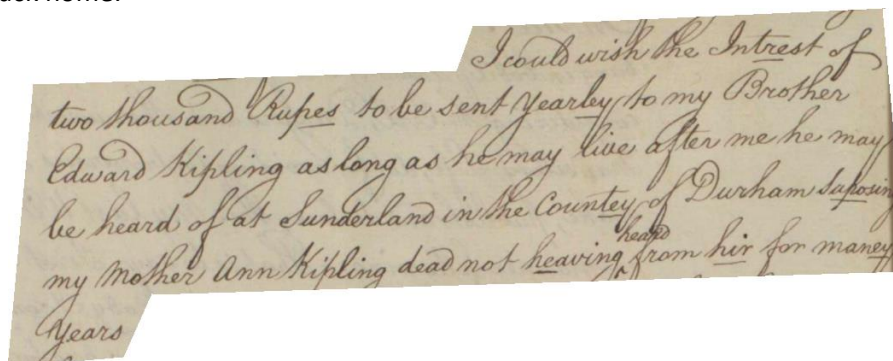 I could wish the Intrest of
two thousand Rupes to be sent yearley to my Brother
Edward Kipling as long as he may live after me he may
be heard of at Sunderland in the Countey of Durham Saposing
my Mother Ann Kipling dead not heaving heard from hir for maney
years